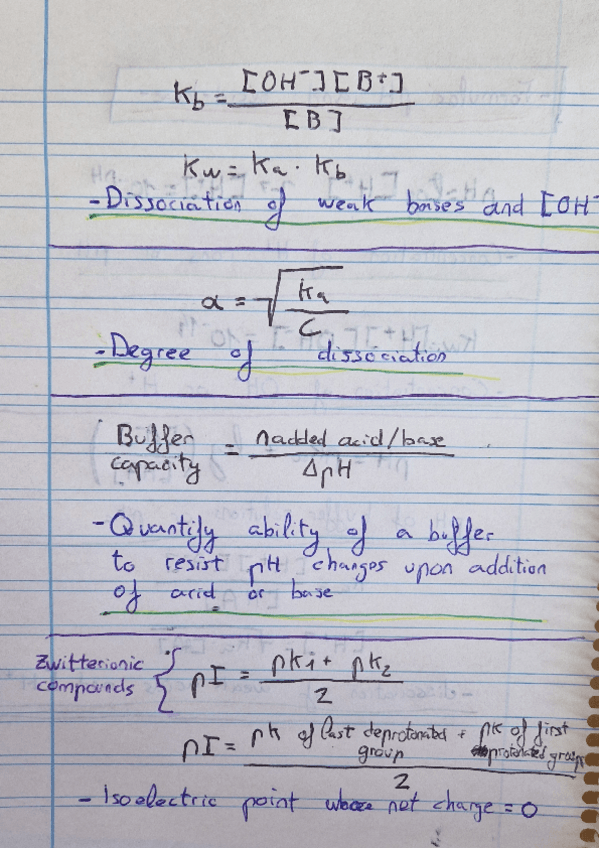 Kb = [OH⁻][B⁺] / [B]
Kw = Ka · Kb
- Dissociation of weak bases and [OH⁻
α = √(Ka / C)
- Degree of dissociation
Buffer capacity = nadded acid/base / ΔpH
- Quantify ability of a buffer
to resist pH changes upon addition
of acid or base
Zwitterionic compounds { pI = pK1 + pK2 / 2
pI = pK of last deprotonated group + pK of first protonated group / 2
- Isoelectric point where net charge = 0